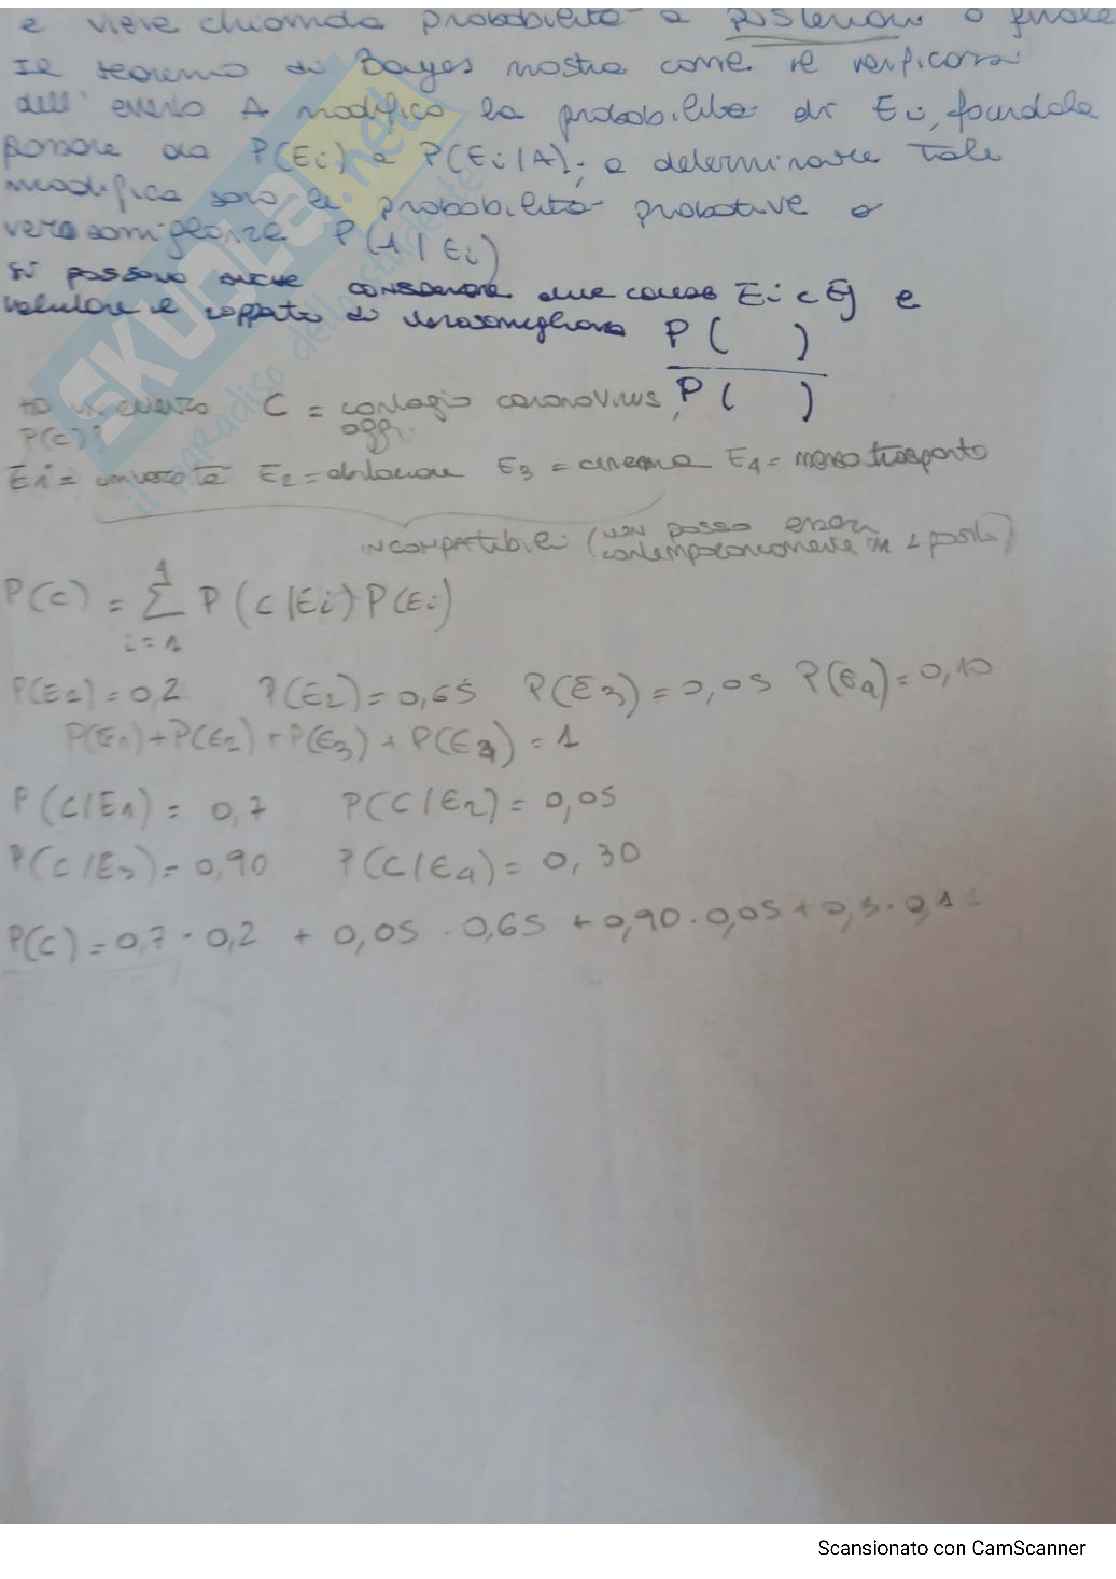 e viene chiamata probabilità a posteriori o finale
Il teorema di Bayes mostra come il verificarsi
dell' evento A modifica la probabilità di Ei, facendola
passare da P(Ei) a P(Ei|A); a determinare tale
modifica sono le probabilità probative o
verosomiglianze P(A|Ei)
Si possono anche considerare due cause Ei e Ej e
valutare il rapporto di verosomiglianza P( )
P( )
evento C = contagio coronavirus
oggi
P(C)?
E1 = università E2 = abitazione E3 = cinema E4 = mezzo trasporto
INCOMPATIBILI (non posso essere
contemporaneamente in 2 posti)
P(C) = 4 Σ i=1 P(C|Ei)P(Ei)
P(E1)=0,2 P(E2)=0,65 P(E3)=0,05 P(E4)=0,10
P(E1)+P(E2)+P(E3)+P(E4)=1
P(C/E1)= 0,7 P(C/E2)= 0,05
P(C/E3)= 0,90 P(C/E4)= 0,30
P(C)=0,7·0,2 + 0,05·0,65 + 0,90·0,05+0,3·0,1=
SKUOLA.net
il paradiso dello studente
Scansionato con CamScanner